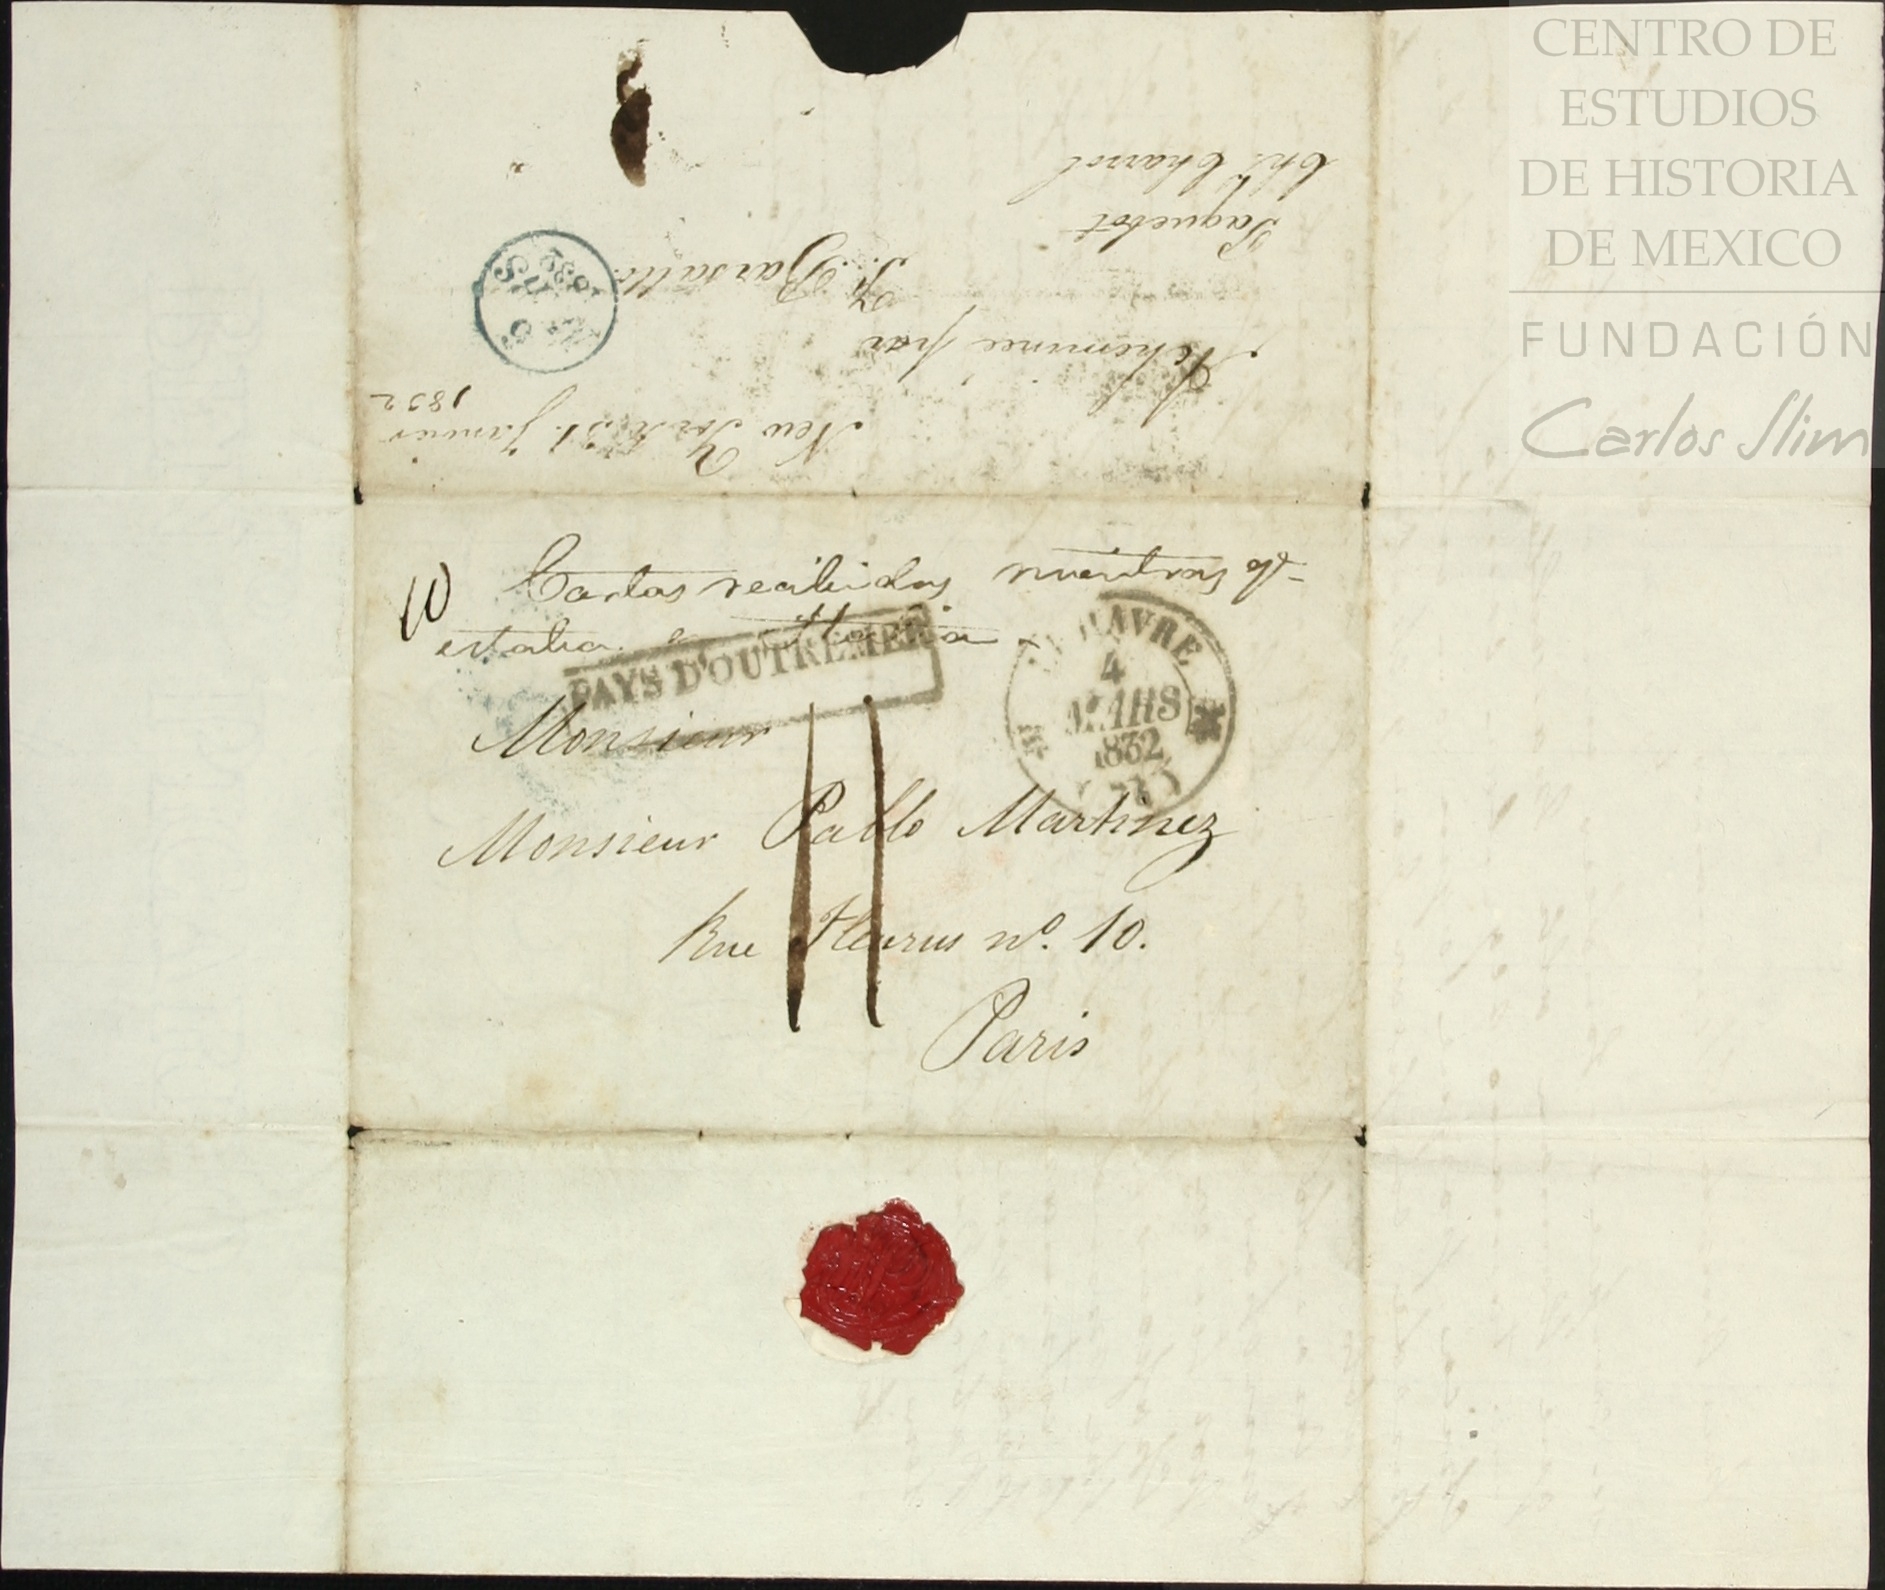 CENTRO DE
ESTUDIOS
DE HISTORIA
DE MEXICO
FUNDACIÓN
Carlos Slim
New York 31. Janvier
1832
Acheminee par
F. Barsallo
Paquebot
Ch.s
1832
10 Cartas recibidas mientras
estaba
PAYS D'OUTREMER
HAVRE
4
MARS
1832
Monsieur
Monsieur Pablo Martinez
Rue Fleurus nº. 10.
Paris